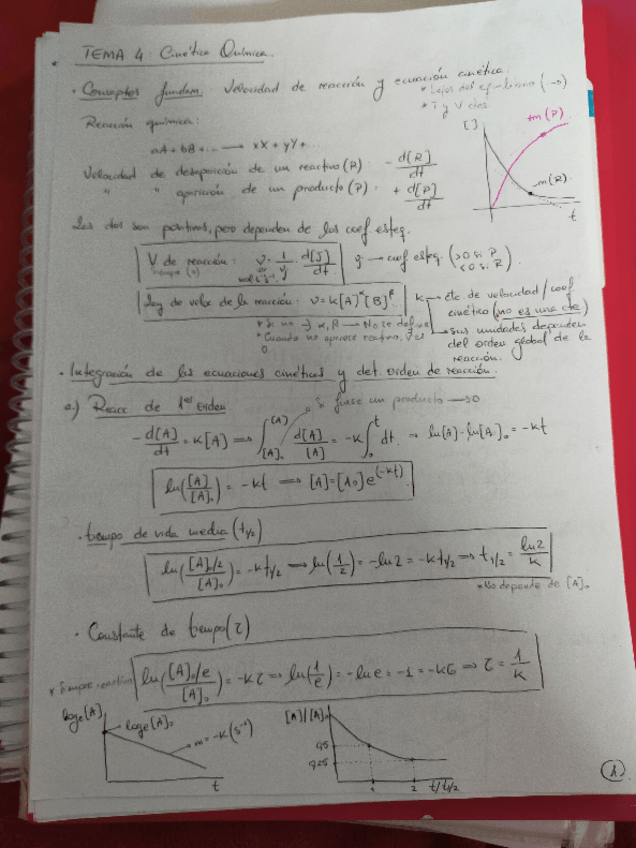 TEMA 4: Cinética Química.
· Conceptos fundam. Velocidad de reacción y ecuación cinética.
* Lejos del equilibrio (→)
* T y V ctes.
Reacción química:
aA + bB + ... → xX + yY + ...
[ ]
m(P)
m(R)
t
Velocidad de desaparición de un reactivo (R): - d[R]/dt
" " aparición de un producto (P): + d[P]/dt
Las dos son positivas, pero dependen de los coef. esteq.
V de reacción: v = 1/y · d[J]/dt
mol·L⁻¹·s⁻¹
y → coef esteq. (>0 si P, <0 si R).
Ley de veloc de la reacción: v = k[A]^α[B]^β
k → cte. de velocidad / coef cinético (no es una cte)
→ sus unidades dependen del orden global de la reacción.
* Si no ∃ α, β → No se define
* Cuando no aparece reactivo, β es 0
· Integración de las ecuaciones cinéticas y det. orden de reacción.
a) Reacc de 1er orden
si fuese un producto → >0
-d[A]/dt = k[A] ⟹ ∫_[A]₀^[A] d[A]/[A] = -k ∫_0^t dt → ln[A] - ln[A]₀ = -kt
ln([A]/[A]₀) = -kt ⟹ [A] = [A₀]e^(-kt)
· tiempo de vida media (t1/2)
ln([A]₀/2 / [A]₀) = -kt1/2 ⟹ ln(1/2) = -ln2 = -kt1/2 ⟹ t1/2 = ln2/k
* No depende de [A]₀
· Constante de tiempo (τ)
ln([A]₀/e / [A]₀) = -kτ ⟹ ln(1/e) = -ln e = -1 = -kτ ⟹ τ = 1/k
loge[A]
loge[A]₀
m = -k (s⁻¹)
t
[A]/[A]₀
0,5
0,25
1 2 t/t1/2
1